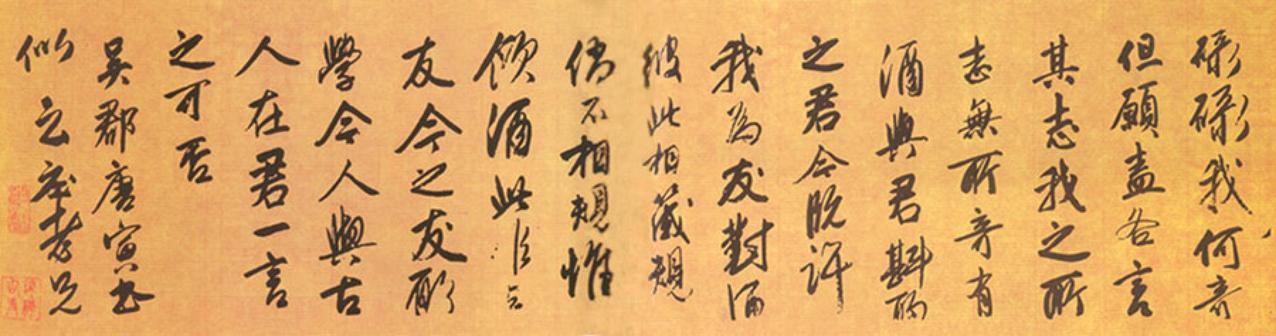 碌碌我何奇
但願盍各言
其志我之所
志無所奇有
酒與君斟酌
之君今既許
我為友對酒
彼此相箴規
倘不相規惟
飲酒此
友今之友所
學今人與古
人在君一言
之可否
吳郡唐寅書
似云庄老兄